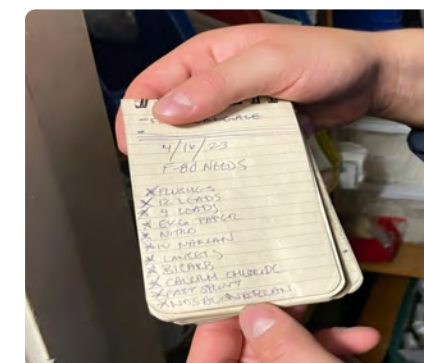 4/16/23
F-80 NEEDS
X FLUSHES
X 12 LEADS
X 4 LEADS
X EKG PAPER
X NITRO
X IV NARCAN
X LANCETS
X BICARB
X CALCIUM CHLORIDE
X FAST SPLINT
X NARCAN